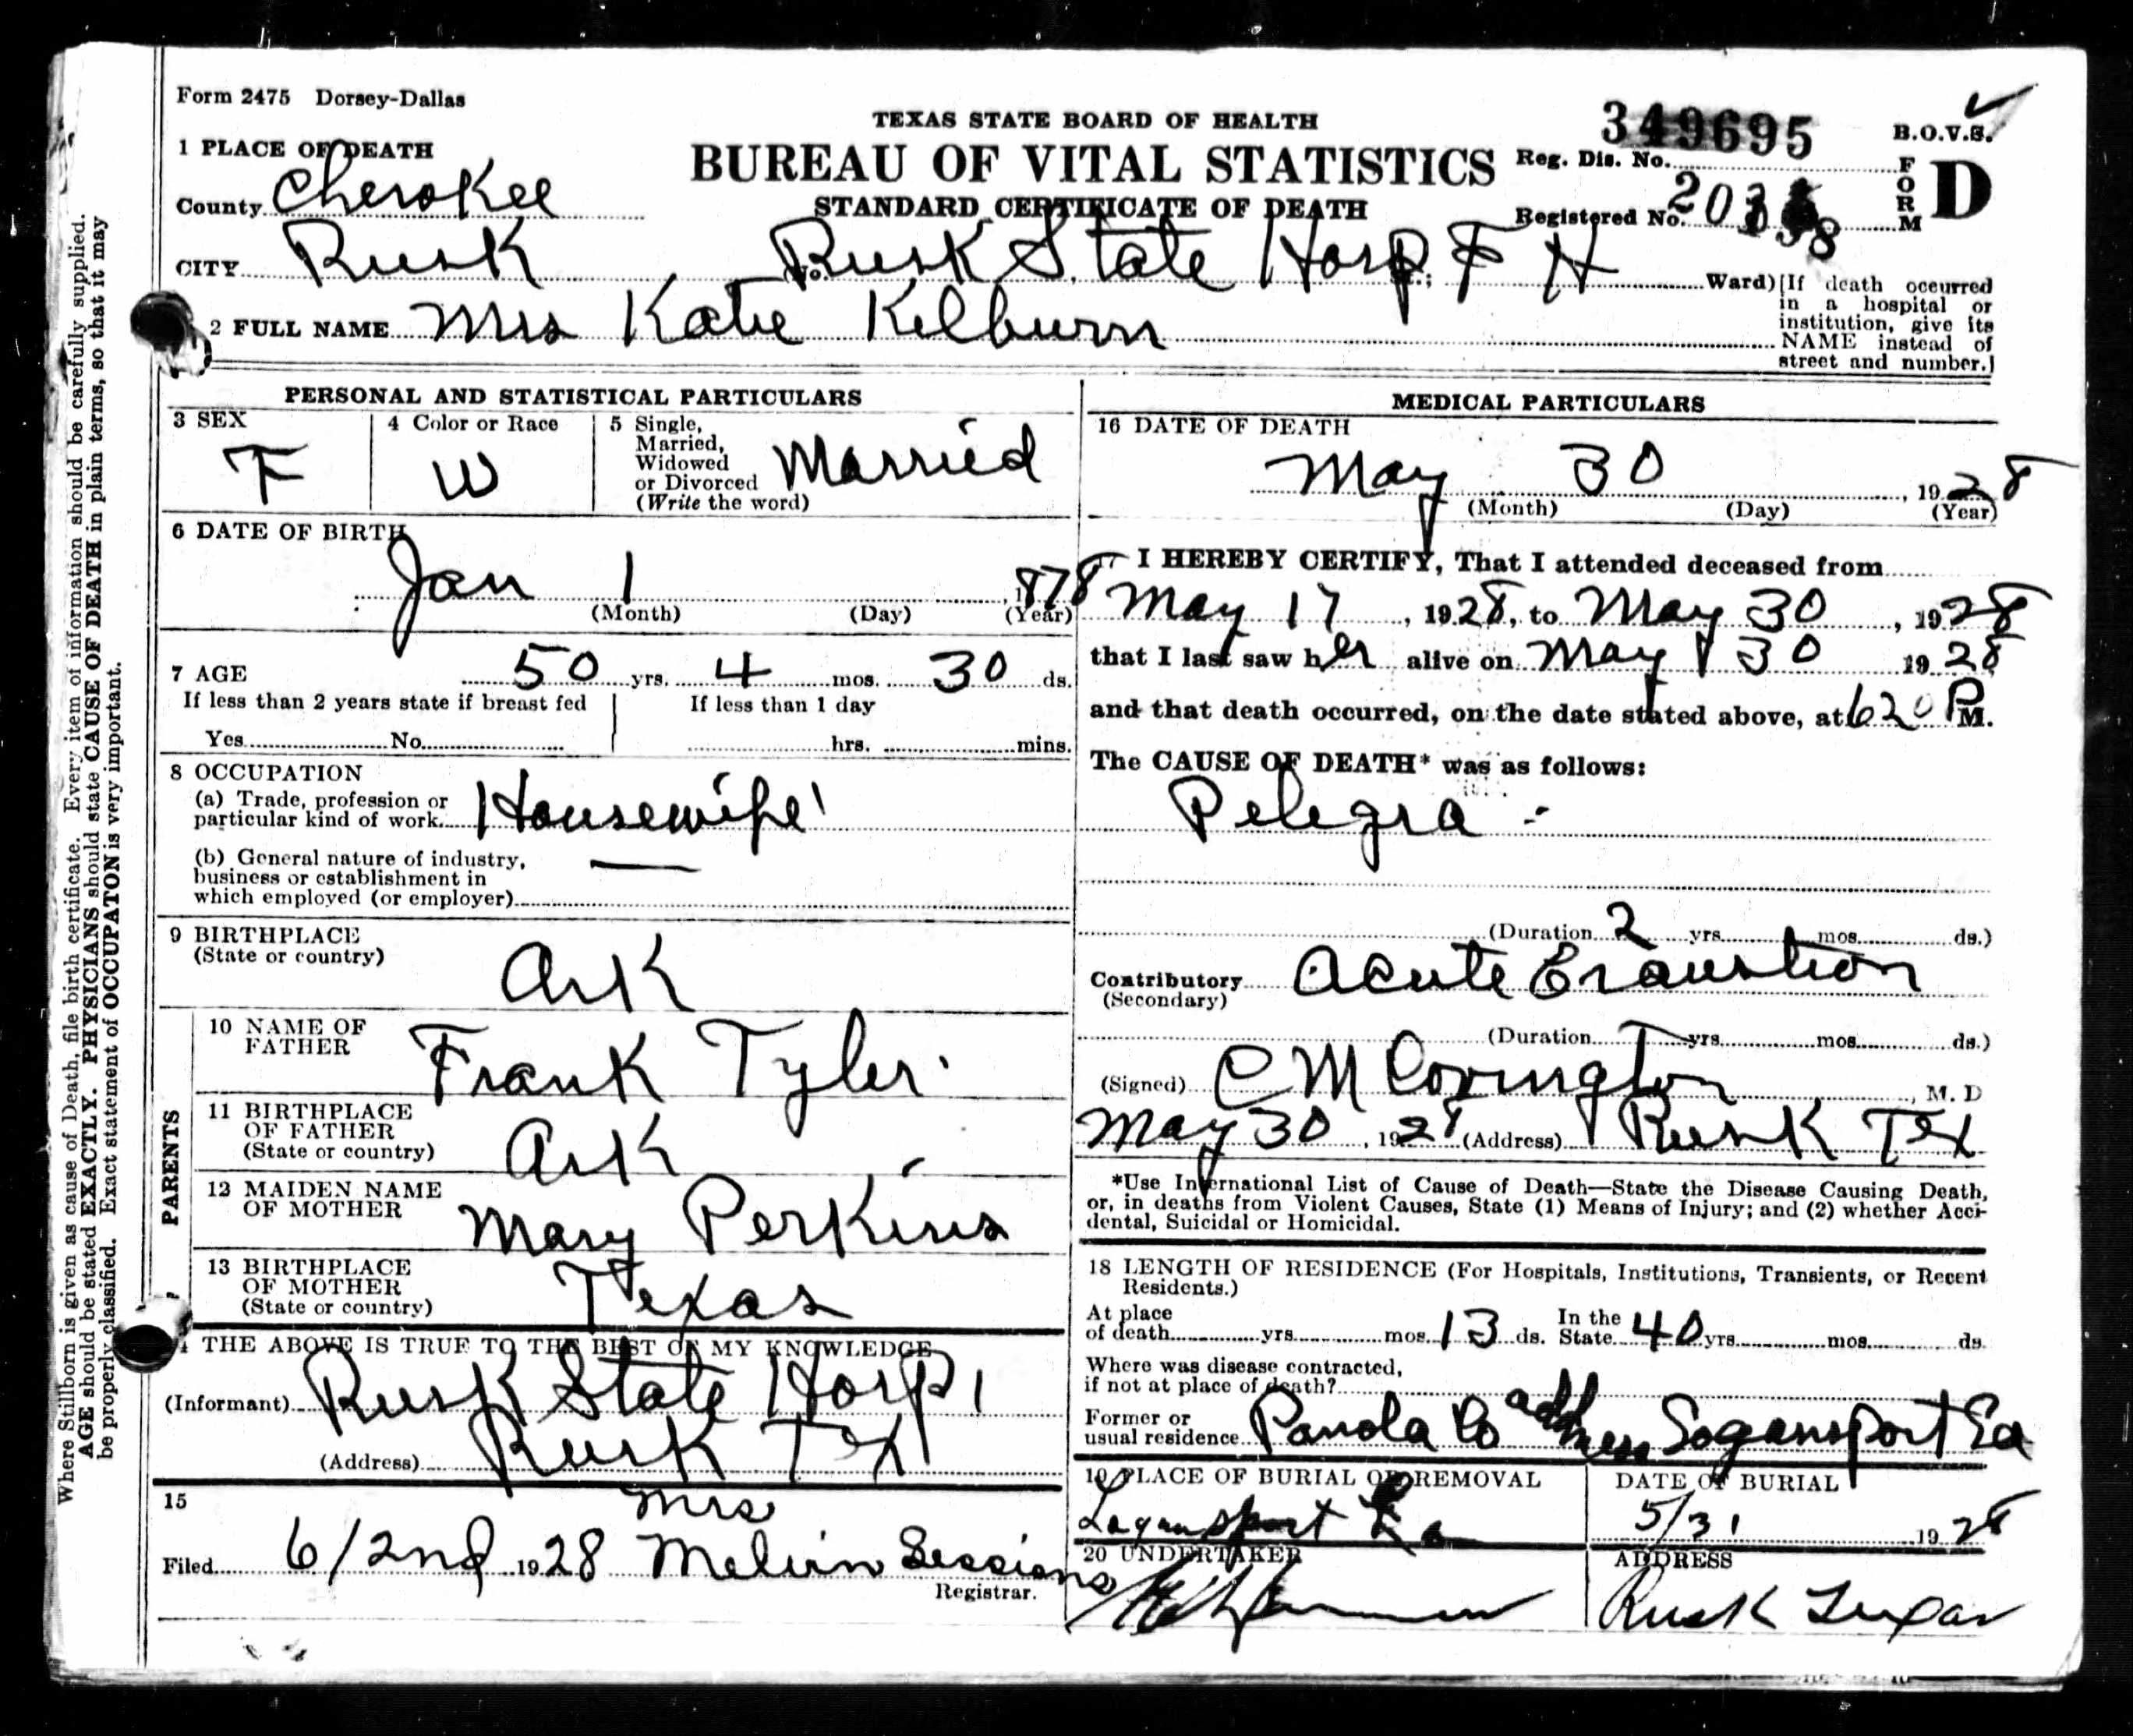 Form 2475 Dorsey-Dallas
TEXAS STATE BOARD OF HEALTH
BUREAU OF VITAL STATISTICS
STANDARD CERTIFICATE OF DEATH
349695
Reg. Dis. No.
Registered No.
B.O.V.S.
FORM D
1 PLACE OF DEATH
County Cherokee
CITY Rusk No. Rusk State Hosp F H Ward)
[If death occurred
in a hospital or
institution, give its
NAME instead of
street and number.]
2 FULL NAME Mrs Katie Kilburn
PERSONAL AND STATISTICAL PARTICULARS
3 SEX
F
4 Color or Race
W
5 Single,
Married,
Widowed
or Divorced
(Write the word)
Married
6 DATE OF BIRTH
Jan 1 1878
(Month) (Day) (Year)
7 AGE 50 yrs. 4 mos. 30 ds.
If less than 2 years state if breast fed
Yes No
If less than 1 day
hrs. mins.
8 OCCUPATION
(a) Trade, profession or
particular kind of work Housewife
(b) General nature of industry,
business or establishment in
which employed (or employer)
9 BIRTHPLACE
(State or country)
Ark
PARENTS
10 NAME OF
FATHER
Frank Tyler
11 BIRTHPLACE
OF FATHER
(State or country)
Ark
12 MAIDEN NAME
OF MOTHER
Mary Perkins
13 BIRTHPLACE
OF MOTHER
(State or country)
Texas
THE ABOVE IS TRUE TO THE BEST OF MY KNOWLEDGE
(Informant) Rusk State Hosp
(Address) Rusk Tex
15
Mrs
Filed 6/2nd 1928 Melvin Sessions
Registrar.
MEDICAL PARTICULARS
16 DATE OF DEATH
May 30, 1928
(Month) (Day) (Year)
17 I HEREBY CERTIFY, That I attended deceased from
May 17, 1928, to May 30, 1928
that I last saw her alive on May 30 1928
and that death occurred, on the date stated above, at 620 P M.
The CAUSE OF DEATH* was as follows:
Pelegra
(Duration 2 yrs. mos. ds.)
Contributory Acute Exaustion
(Secondary)
(Duration yrs. mos. ds.)
(Signed) C M Covington, M. D
May 30, 1928 (Address) Rusk Tex
*Use International List of Cause of Death—State the Disease Causing Death,
or, in deaths from Violent Causes, State (1) Means of Injury; and (2) whether Acci-
dental, Suicidal or Homicidal.
18 LENGTH OF RESIDENCE (For Hospitals, Institutions, Transients, or Recent
Residents.)
At place
of death yrs. mos. 13 ds.
In the
State 40 yrs. mos. ds.
Where was disease contracted,
if not at place of death?
Former or
usual residence Panola Co address Logansport La
19 PLACE OF BURIAL OR REMOVAL
Logansport La
DATE OF BURIAL
5/31 1928
20 UNDERTAKER
ADDRESS
Rusk Texas
Where Stillborn is given as cause of Death, file birth certificate. Every item of information should be carefully supplied.
AGE should be stated EXACTLY. PHYSICIANS should state CAUSE OF DEATH in plain terms, so that it may
be properly classified. Exact statement of OCCUPATON is very important.